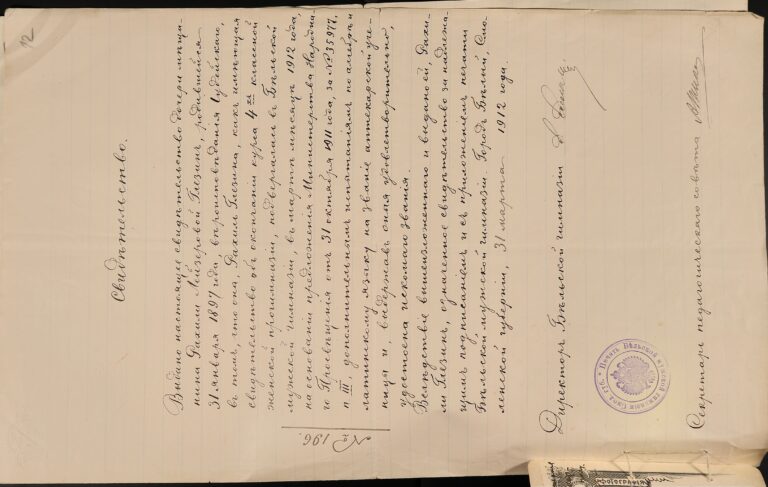 12
Свидѣтельство.
Выдано настоящее свидѣтельство дочери мѣща-
нина Рахили Лейзеровой Глезинъ, родившейся
31 января 1897 года, вѣроисповѣданія Іудейскаго,
въ томъ, что она, Рахиль Глезина, какъ имѣющая
свидѣтельство объ окончаніи курса 4хъ классной
женской прогимназіи, подвергалась въ Бѣльской
мужской гимназіи, въ мартѣ мѣсяцѣ 1912 года,
на основаніи предложенія Министерства Народна-
го Просвѣщенія отъ 31 октября 1911 года, за № 35977,
п III, дополнительнымъ испытаніямъ по алгебрѣ и
латинскому языку на званіе аптекарской уче-
ницы и, выдержавъ оныя удовлетворительно,
удостоена искомаго званія.
Вслѣдствіе вышеизложеннаго и выдано ей, Рахи-
ли Глезинъ, означенное свидѣтельство за надлежа-
щимъ подписаніемъ и съ приложеніемъ печати
Бѣльской мужской гимназіи. Городъ Бѣлый, Смо-
ленской губерніи, 31 марта 1912 года.
№ 196.
Директоръ Бѣльской гимназіи
Печать Бѣльской мужской гимназіи Смол. губ.
Секретарь педагогическаго совѣта
ФОТОГРАФІЯ